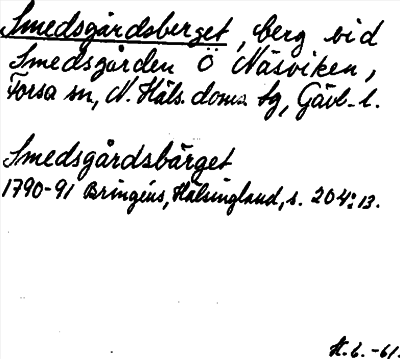 Smedsgårdsberget, berg vid
Smedsgården Ö Näsviken,
Forsa sn, N. Häls. doms. tg, Gävl. l.
Smedsgårdsbärget
1790-91 Bringéus, Hälsingland, s. 204:13.
H. E. -61.